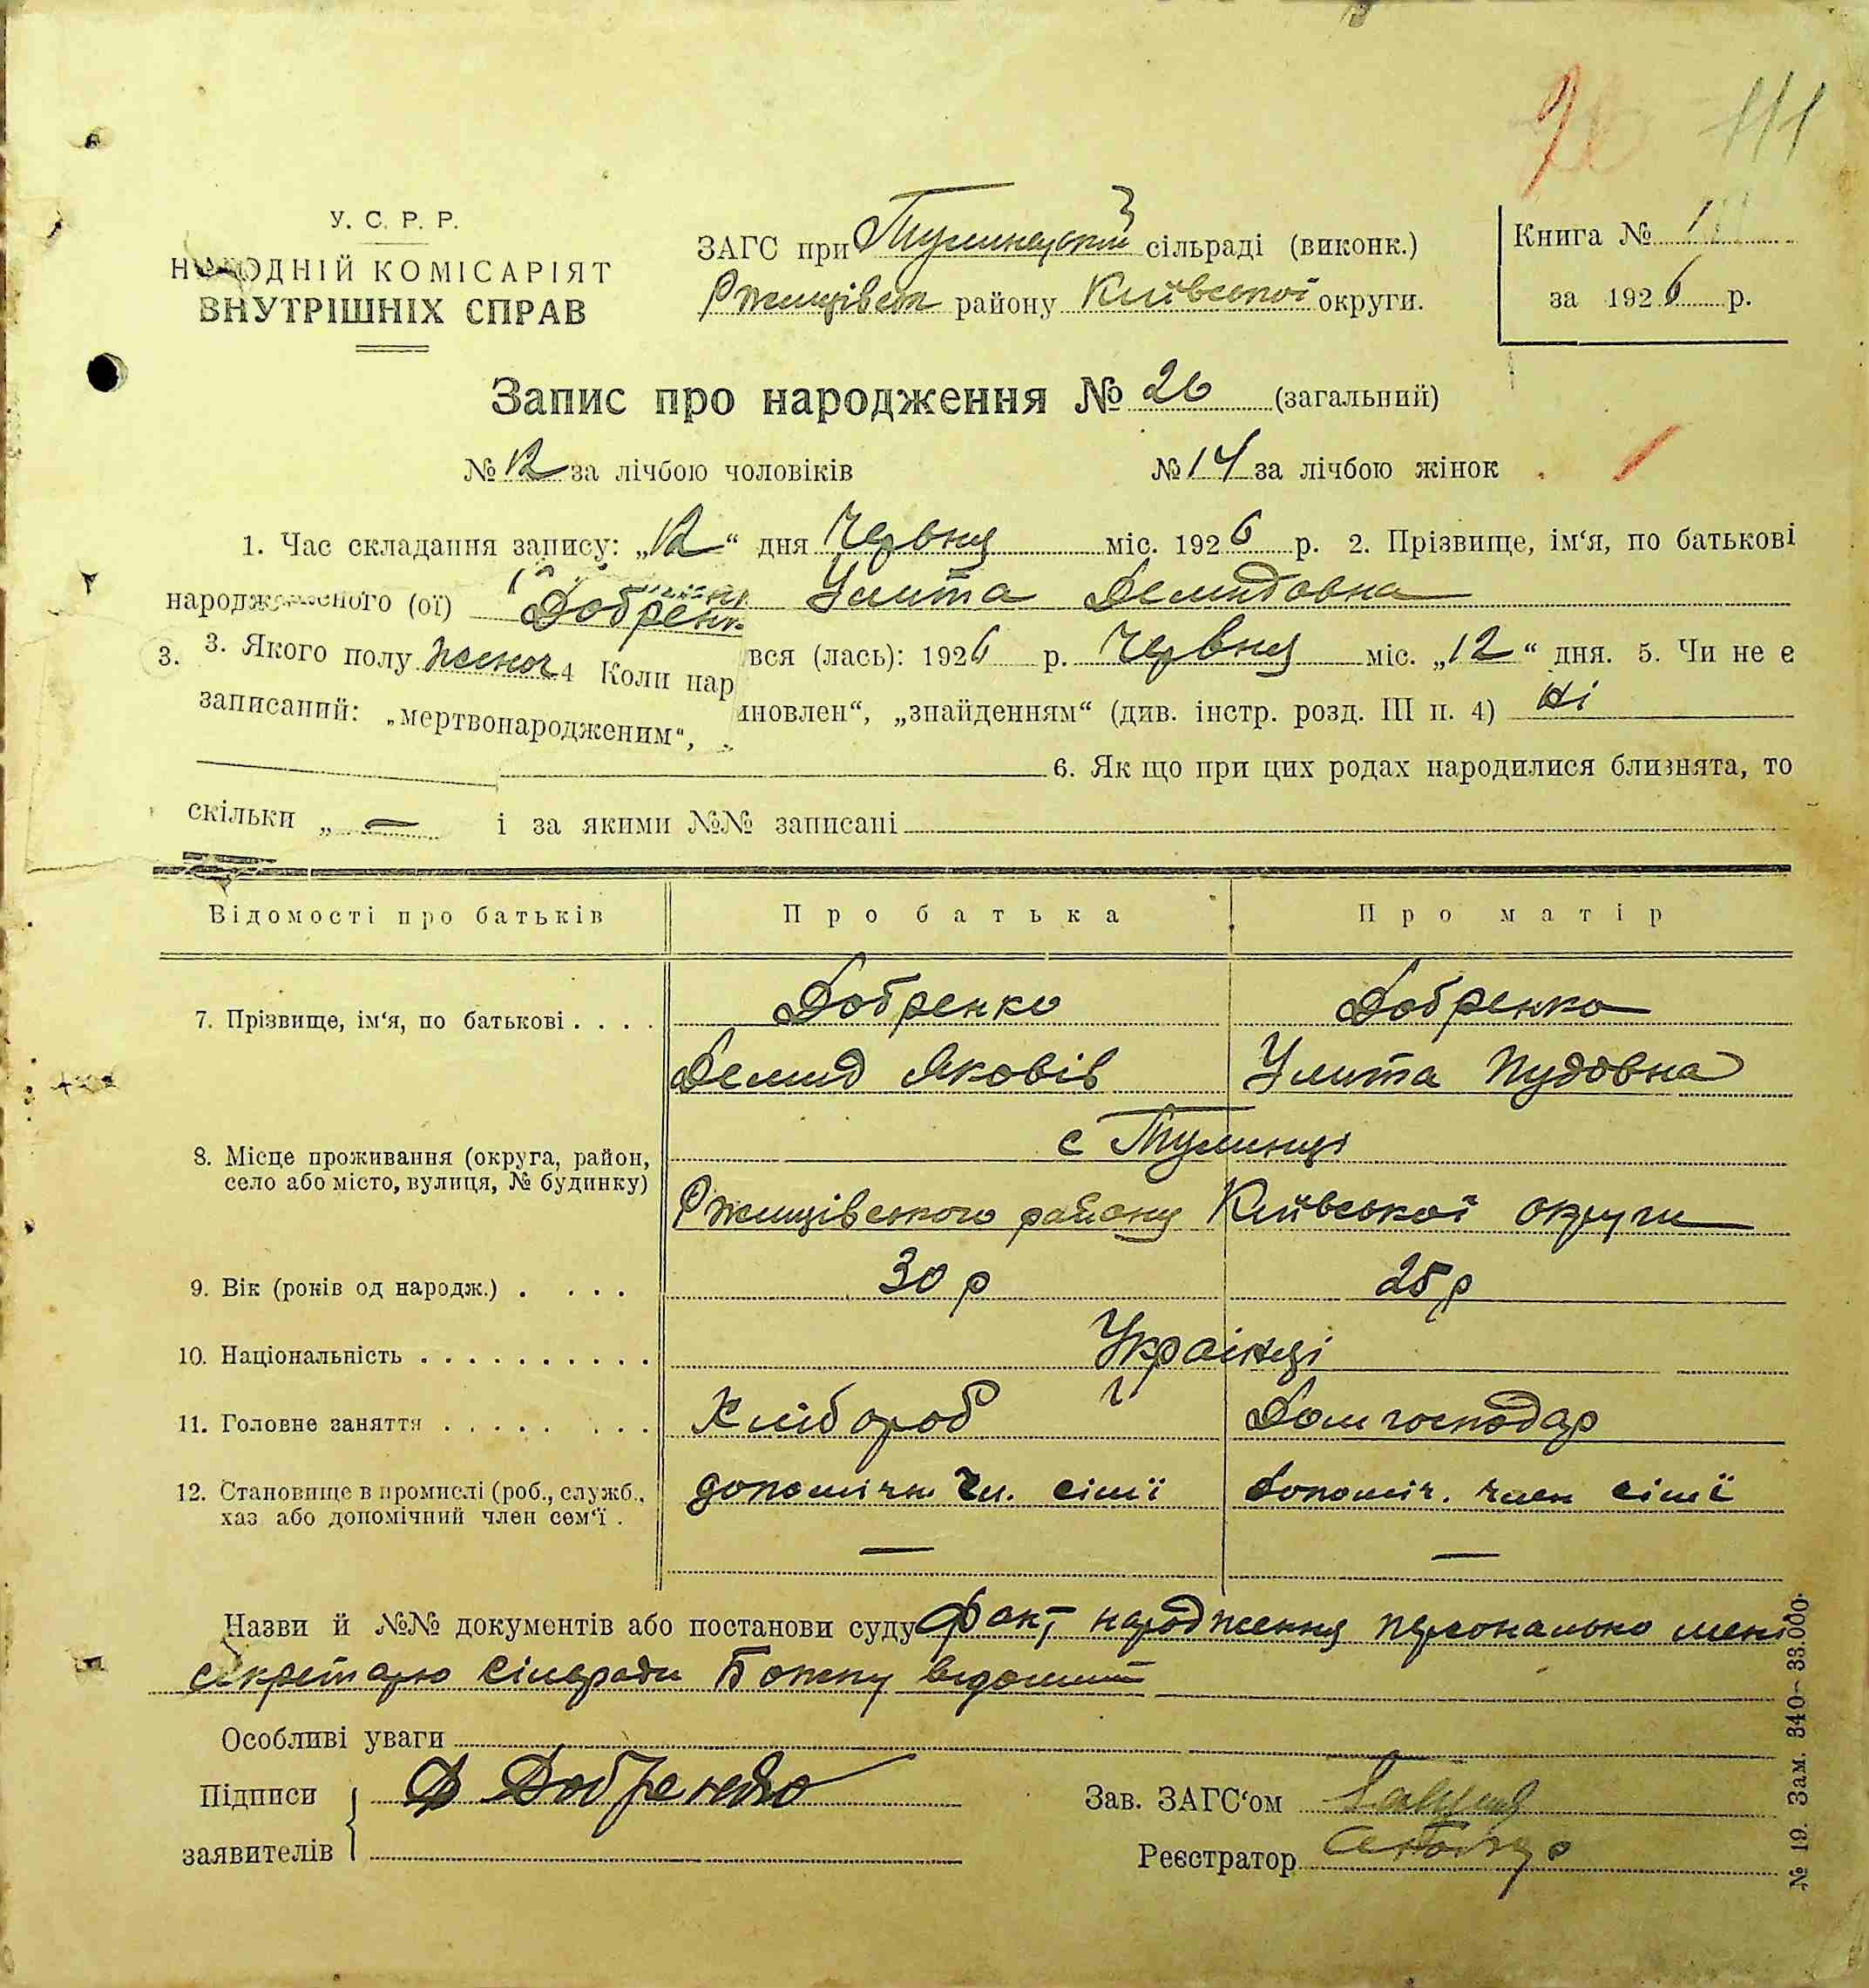 26 111
У. С. Р. Р.
НАРОДНІЙ КОМІСАРІЯТ
ВНУТРІШНІХ СПРАВ
ЗАГС при Тулинецькій сільраді (виконк.)
Ржищівськ району Київської округи.
Книга № 1
за 1926 р.
Запис про народження № 26 (загальний)
№ 12 за лічбою чоловіків № 14 за лічбою жінок
1. Час складання запису: „12“ дня Червня міс. 1926 р. 2. Прізвище, ім‘я, по батькові
народженого (ої) Добренк Улита Демидовна
3. 3. Якого полу женоч 4 Коли нар вся (лась): 1926 р. Червня міс. „12“ дня. 5. Чи не є
записаний: „мертвонародженим“, „ иновлен“, „знайденням“ (див. інстр. розд. III п. 4) Ні
6. Як що при цих родах народилися близнята, то
скільки „ — і за якими №№ записані
Відомості про батьків Про батька Про матір
7. Прізвище, ім‘я, по батькові . . . . Добренко Добренко
Демид Яковів Улита Пудовна
8. Місце проживання (округа, район, с Тулинці
село або місто, вулиця, № будинку) Ржищівського району Київської округи
9. Вік (років од народж.) . . . . 30 р 25 р
10. Національність . . . . . . . . . . Українці
11. Головне заняття . . . . . . . . Хлібороб Домгосподар
12. Становище в промислі (роб., служб., допомічн. чл. сімї допоміч. член сімї
хаз або допомічний член сем‘ї . — —
Назви й №№ документів або постанови суду Факт народження персонально мені
секретарю сільради відомий
Особливі уваги
Підписи Д Добренко Зав. ЗАГС‘ом
заявителів Реєстратор
№ 19. Зам. 340–33.000.